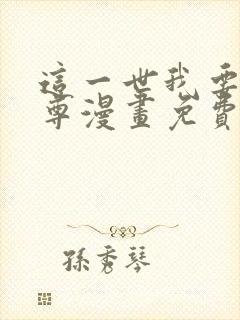 這一世我要
尊漫畫免費
孫秀琴